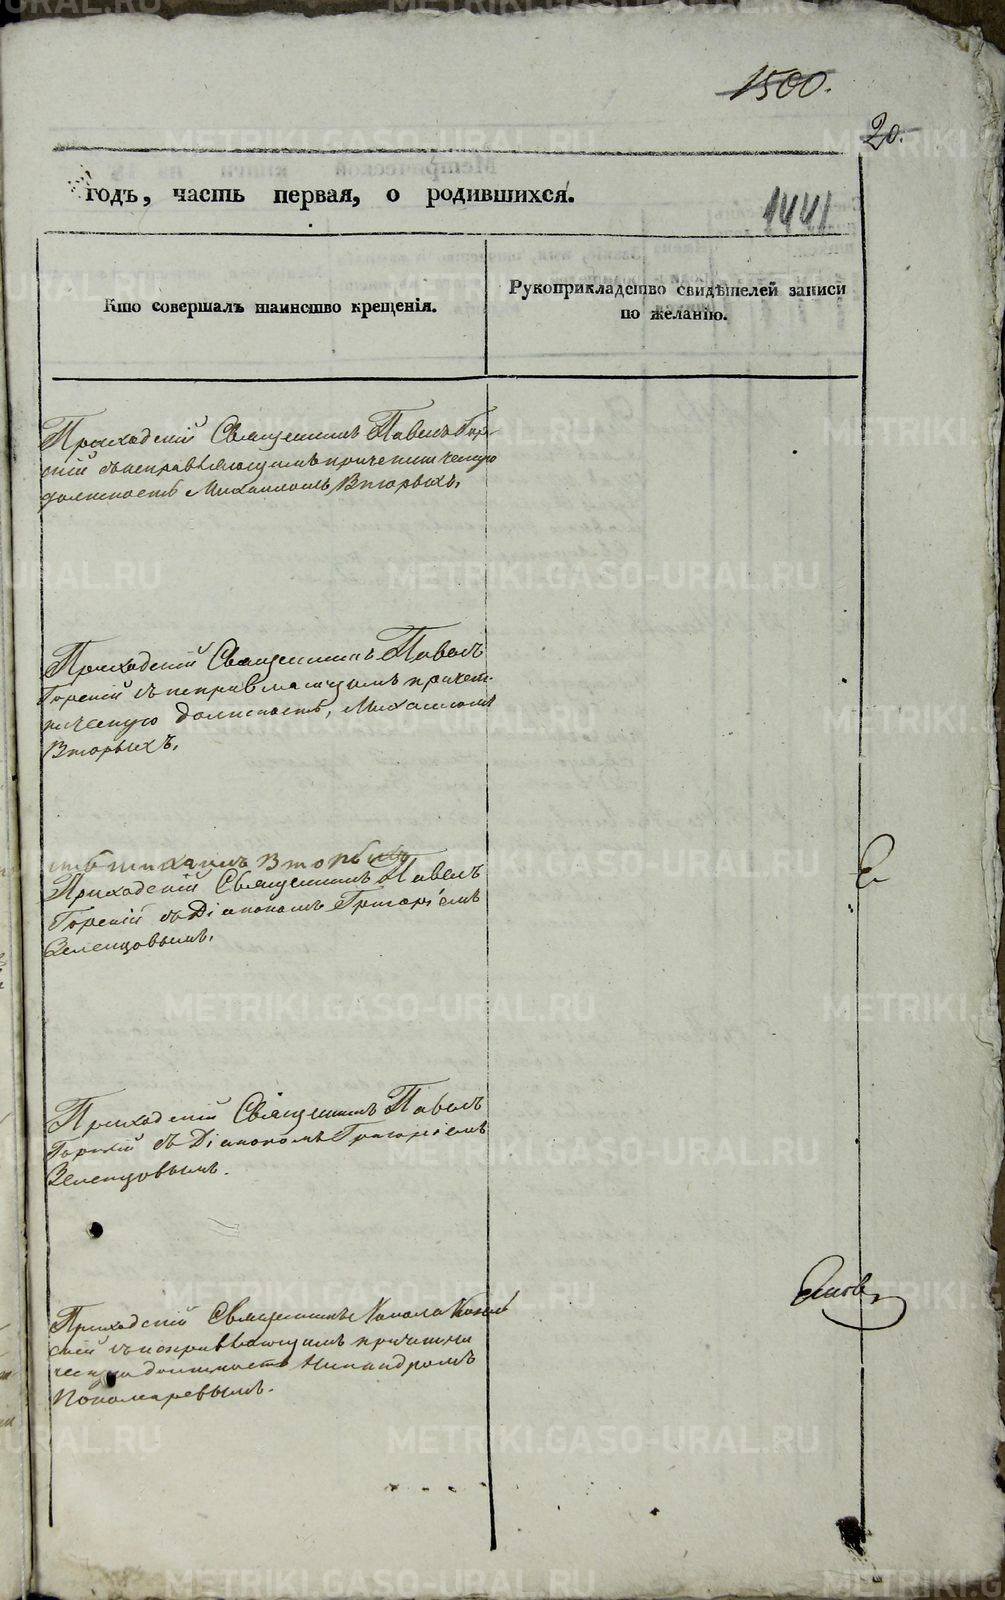 1500.
20.
годъ, часть первая, о родившихся.
1441
Кто совершалъ таинство крещенія.
Рукоприкладство свидѣтелей записи
по желанію.
Приходскій Священникъ Павелъ Гор-
скій съ исправляющимъ причетническую
должность Михаиломъ Вторыхъ.
Приходскій Священникъ Павелъ
Горскій съ исправляющимъ причет-
ническую должность, Михаиломъ
Вторыхъ.
Приходскій Священникъ Павелъ
Горскій съ Діакономъ Григоріемъ
Зеленцовымъ.
Приходскій Священникъ Павелъ
Горскій съ Діакономъ Григоріемъ
Зеленцовымъ.
Приходскій Священникъ
съ исправляющимъ причетни
ческую должность Никандромъ
Пономаревымъ.
METRIKI.GASO-URAL.RU